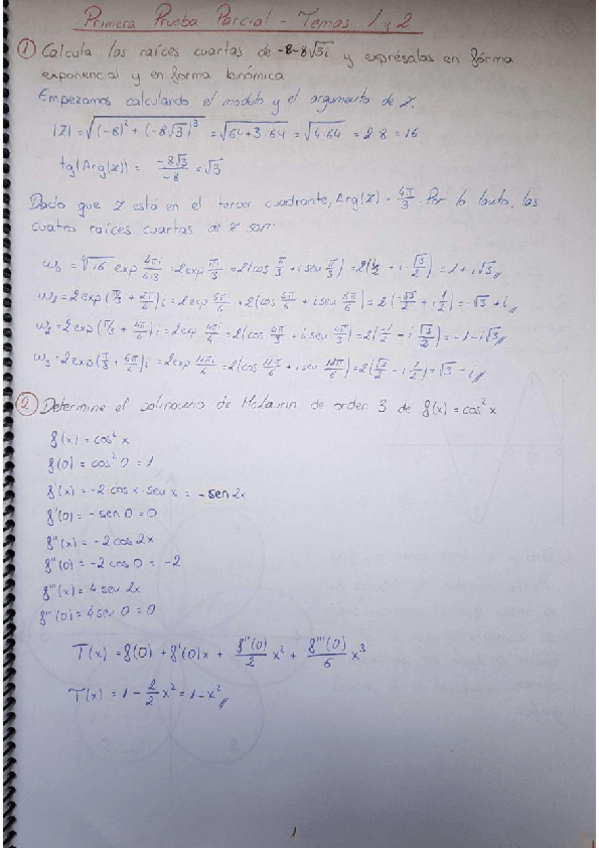 Primera Prueba Parcial - Temas 1 y 2
① Calcula las raíces cuartas de -8-8√3i y exprésalas en forma
exponencial y en forma binómica
Empezamos calculando el modulo y el argumento de z.
|z| = √((-8)² + (-8√3)³) = √(64+3·64) = √(4·64) = 2·8 = 16
tg(Arg(z)) = -8√3/-8 = √3
Dado que z está en el tercer cuadrante, Arg(z) = 4π/3. Por lo tanto, las
cuatro raíces cuartas de z son:
w₀ = ⁴√16 exp 4πi/4·3 = 2exp πi/3 = 2(cos π/3 + i sen π/3) = 2(1/2 + i √3/2) = 1 + i√3
w₁ = 2exp(π/3 + 2π/4)i = 2exp 5πi/6 = 2(cos 5π/6 + i sen 5π/6) = 2(-√3/2 + i 1/2) = -√3 + i
w₂ = 2exp(π/3 + 4π/4)i = 2exp 4πi/3 = 2(cos 4π/3 + i sen 4π/3) = 2(-1/2 - i √3/2) = -1 - i√3
w₃ = 2exp(π/3 + 6π/4)i = 2exp 11πi/6 = 2(cos 11π/6 + i sen 11π/6) = 2(√3/2 - i 1/2) = √3 - i
② Determine el polinomio de McLaurin de orden 3 de f(x) = cos²x
f(x) = cos²x
f(0) = cos²0 = 1
f'(x) = -2 cos x · sen x = -sen 2x
f'(0) = -sen 0 = 0
f''(x) = -2 cos 2x
f''(0) = -2 cos 0 = -2
f'''(x) = 4 sen 2x
f'''(0) = 4 sen 0 = 0
T(x) = f(0) + f'(0)x + f''(0)/2 x² + f'''(0)/6 x³
T(x) = 1 - 2/2 x² = 1 - x²